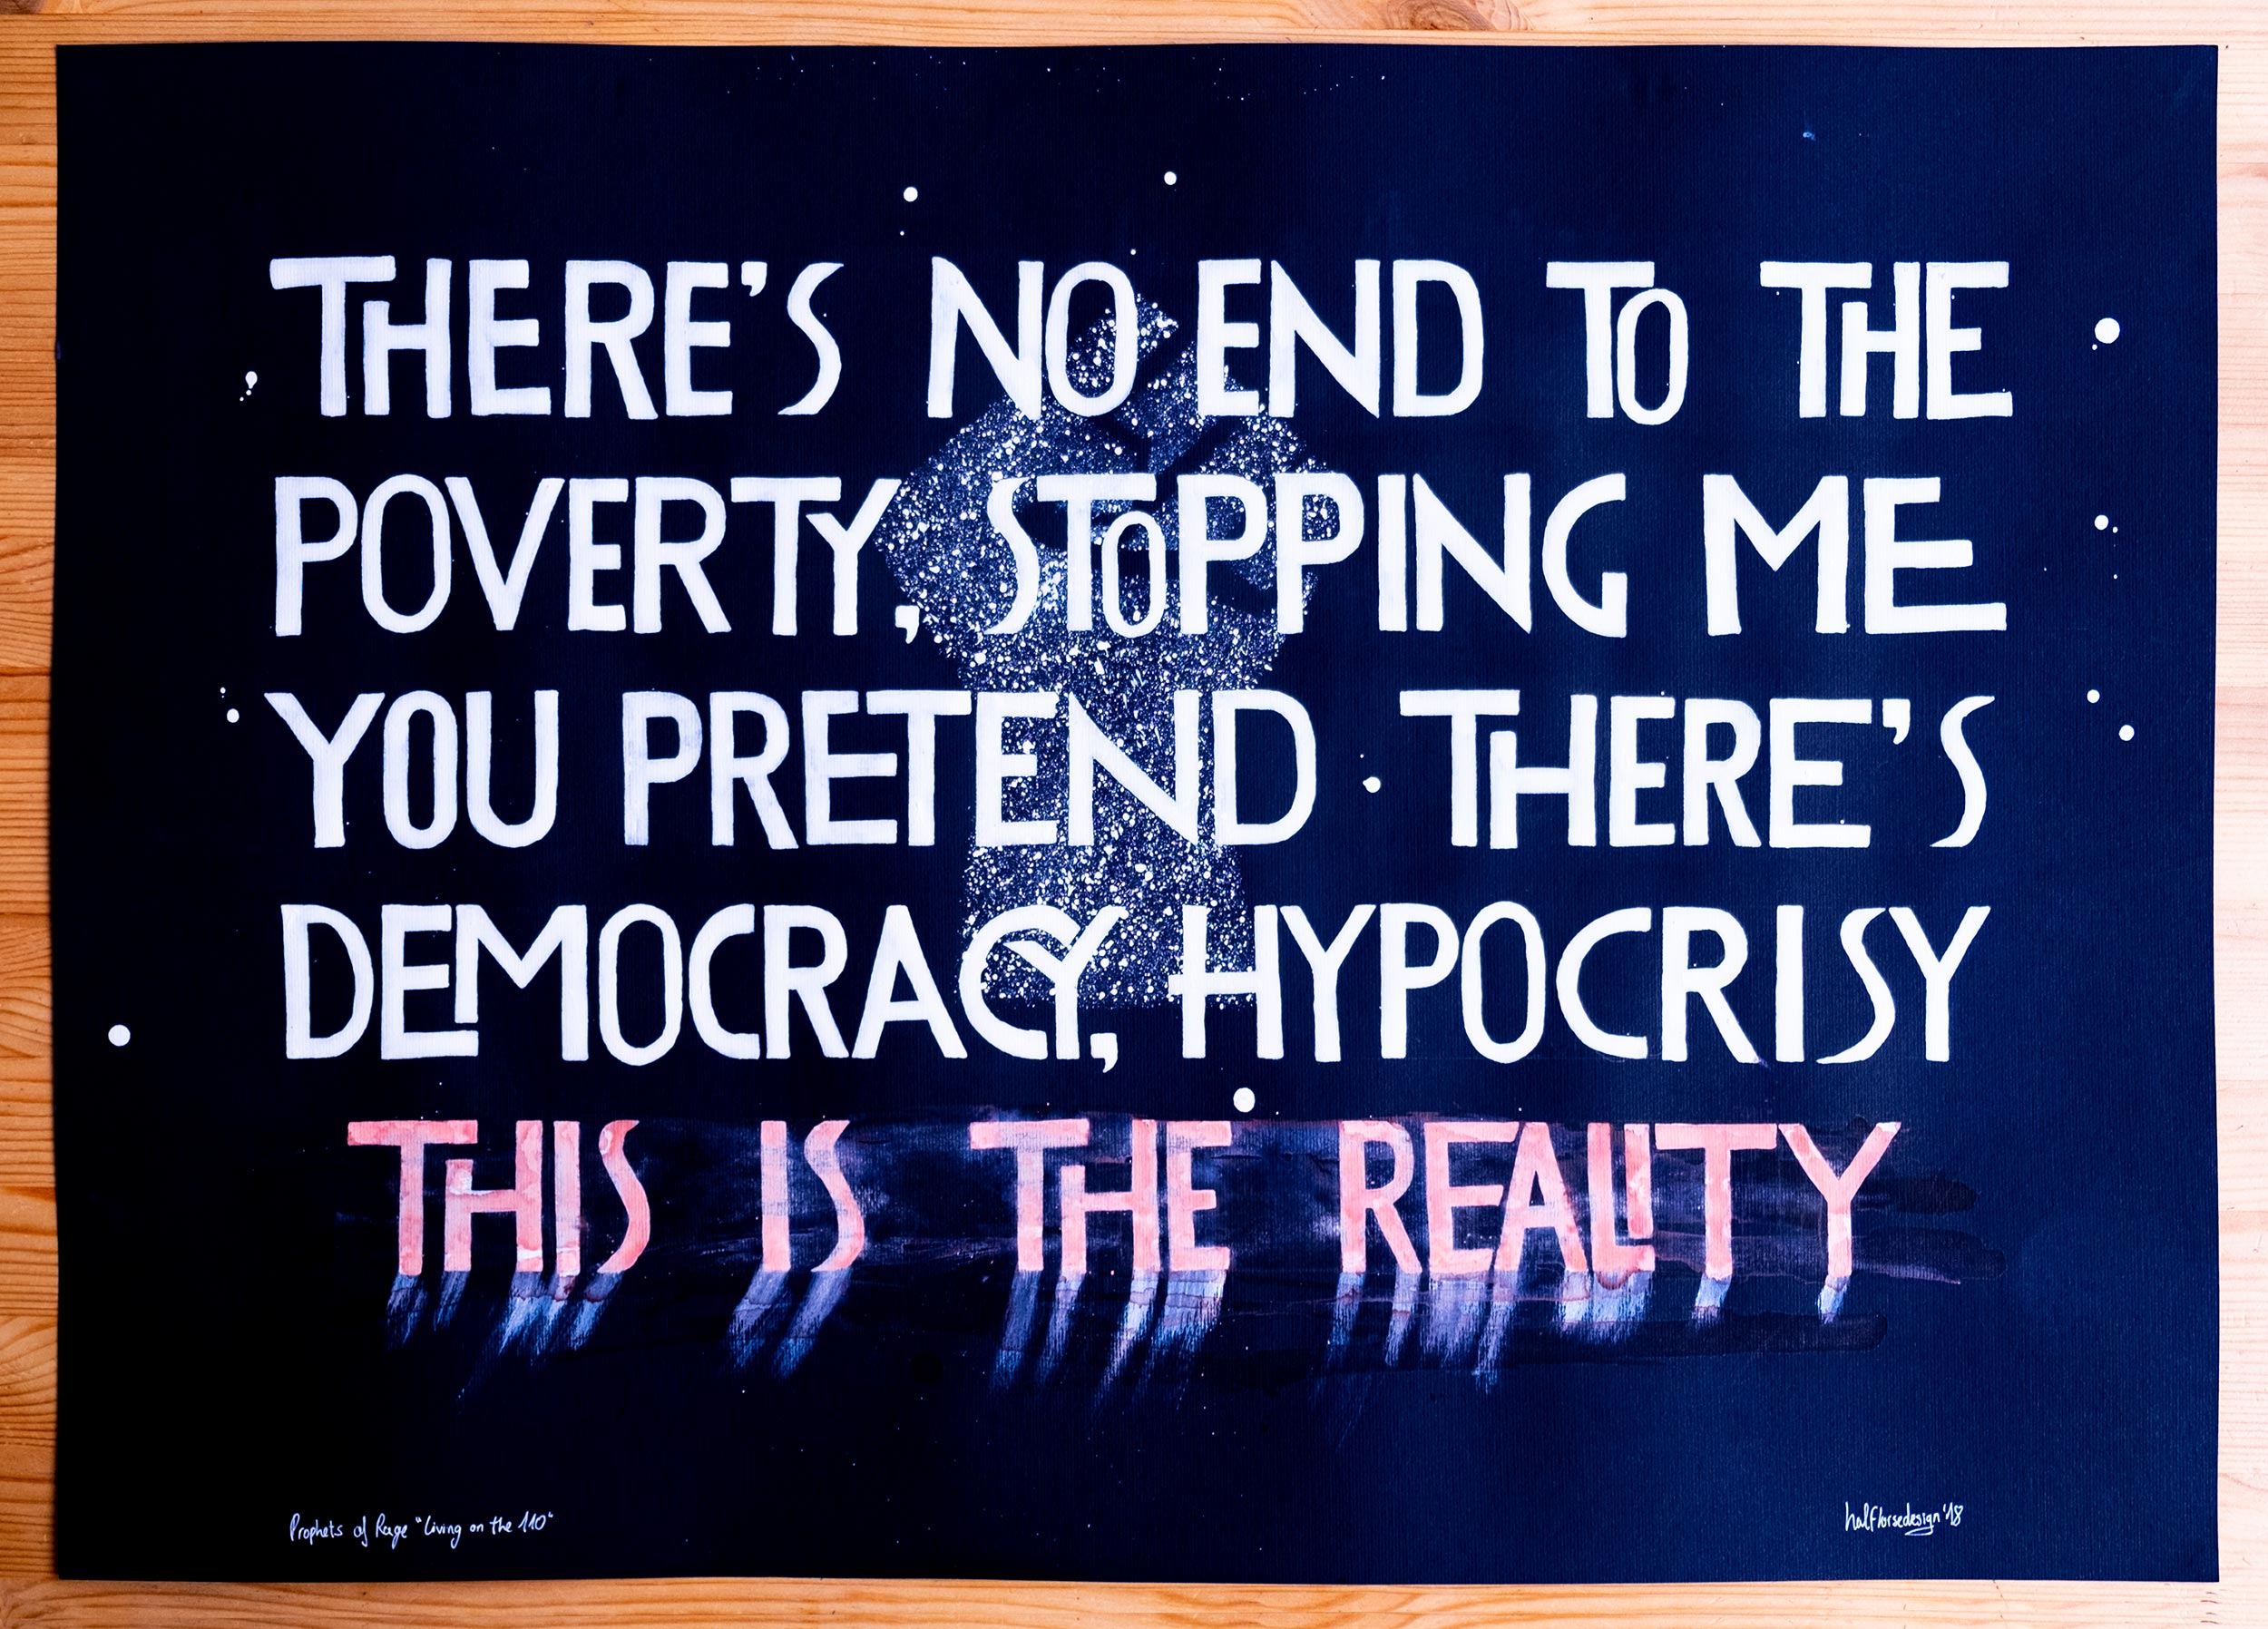 THERE'S NO END TO THE
POVERTY, STOPPING ME
YOU PRETEND THERE'S
DEMOCRACY, HYPOCRISY
THIS IS THE REALITY
Prophets of Rage "Living on the 110"
halfhorsedesign '18